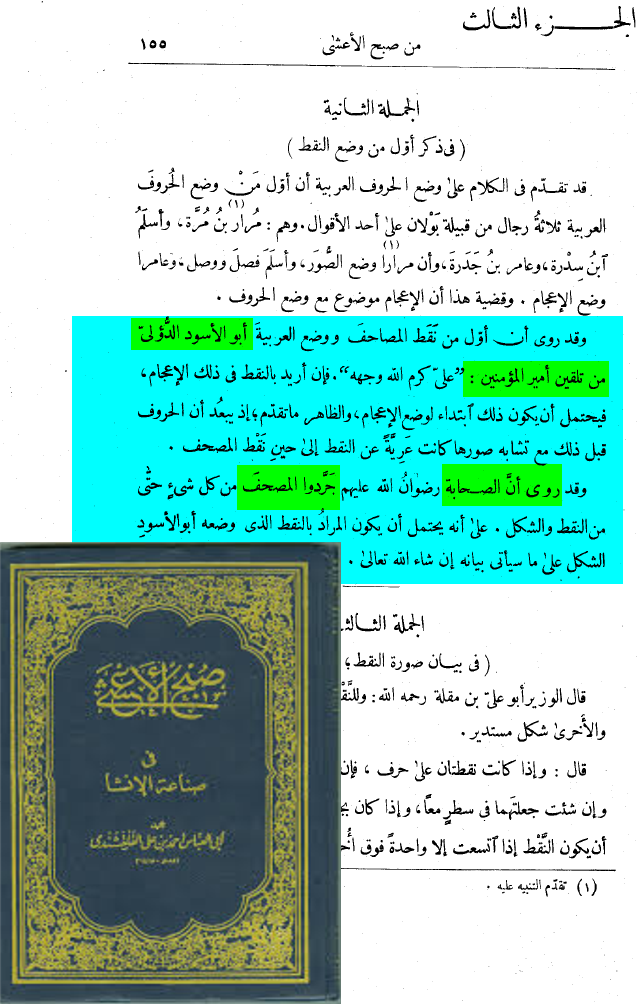 الجزء الثالث
من صبح الأعشى ١٥٥
الجملة الثانية
( فى ذكر أوّل من وضع النقط )
قد تقدّم فى الكلام على وضع الحروف العربية أن أوّل مَنْ وضع الحُروفَ
العربية ثلاثةُ رجال من قبيلة بَوْلان على أحد الأقوال. وهم : مُرارُ (١) بنُ مُرَّة، وأسلَمُ
ٱبنُ سِدْرة، وعامر بنُ جَدَرة، وأن مرارا (١) وضع الصُّوَر، وأسلَمَ فصلَ ووصل، وعامرا
وضع الإعجام . وقضية هذا أن الإعجام موضوع مع وضع الحروف .
وقد روى أن أوّل من نَقَط المصاحفَ ووضع العربيةَ أبو الأسود الدُّؤَلىّ
من تلقين أمير المؤمنين : ”علىّ كرم الله وجهه“. فإن أريد بالنقط فى ذلك الإعجام،
فيحتمل أن يكون ذلك ٱبتداء لوضع الإعجام، والظاهر ما تقدّم؛ إذ يبعُد أن الحروف
قبل ذلك مع تشابه صورها كانت عَرِيَّةً عن النقط إلى حينِ نَقْط المصحف .
وقد روى أنَّ الصحابة رضوانُ الله عليهم جَرَّدوا المصحفَ من كل شىءٍ حتّى
من النقط والشكل . على أنه يحتمل أن يكون المرادُ بالنقط الذى وضعه أبو الأسودِ
الشكل على ما سيأتى بيانه إن شاء الله تعالى .
الجملة الثالثة
( فى بيان صورة النقط؛
قال الوزير أبو علىّ بن مقلة رحمه الله : وللنَّقْط
والأُخرى شكل مستدير .
قال : وإذا كانت نقطتان على حرف ، فإن
وإن شئت جعلتَهما فى سطرٍ معًا، وإذا كان
أن يكون النَّقْط إذا ٱتسعت إلا واحدةً فوق
(١) تقدّم التنبيه عليه .
صبح الأعشى
فى
صناعة الإنشا
أبي العباس احمد بن علي القلقشندي